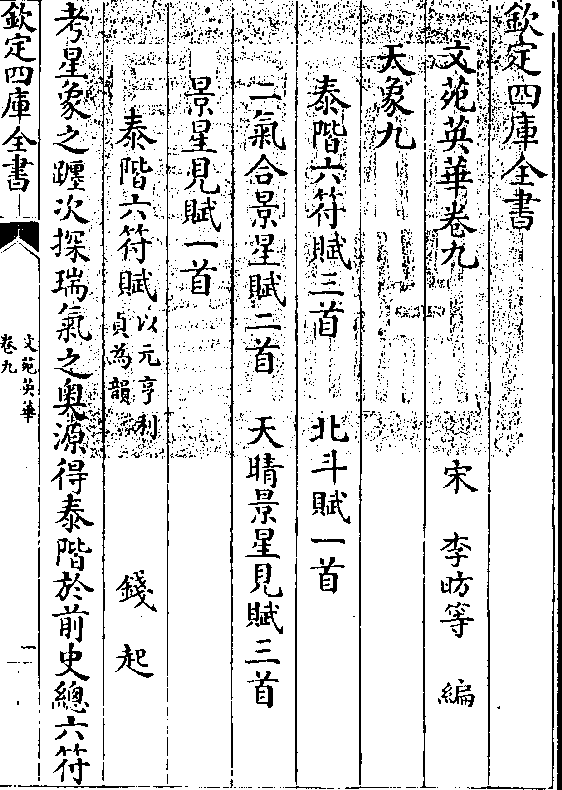 欽定四庫全書
文苑英華卷九
宋 李昉等 編
天象九
泰階六符賦三首 北斗賦一首
二氣合景星賦二首 天晴景星見賦三首
景星見賦一首
泰階六符賦以元亨利貞為韻 錢起
考星象之躔次探瑞氣之奧源得泰階於前史總六符
欽定四庫全書
文苑英華
卷九
一